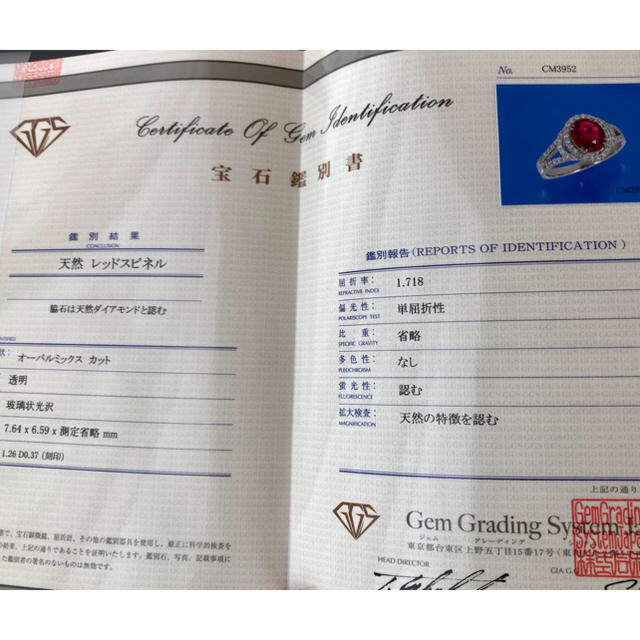 GGS
Certificate Of Gem Identification
宝石鑑別書
鑑別結果
CONCLUSION
天然 レッドスピネル
脇石は天然ダイアモンドと認む
状: オーバルミックス カット
透明
玻璃状光沢
7.64 x 6.59 x 測定省略 mm
1.26 D0.37 (刻印)
察で、宝石顕微鏡、屈折計、その他の鑑別器具を使用し、厳正に科学的検査を
の結果、上記の通りであることを証明いたします。鑑別石、写真、記載事項に
た鑑別者の署名のないものは無効です。
No. CM3952
鑑別報告 (REPORTS OF IDENTIFICATION)
屈折率: 1.718
REFRACTIVE INDEX
偏光性: 単屈折性
POLARISCOPE TEST
比重: 省略
SPECIFIC GRAVITY
多色性: なし
PLEOCHROISM
蛍光性: 認む
FLUORESCENCE
拡大検査: 天然の特徴を認む
MAGNIFICATION
上記の通り
GGS
Gem Grading System
ジェム グレーディング
東京都台東区上野五丁目15番17号
HEAD DIRECTOR
GIA G.G
GemGrading
SystemJapan